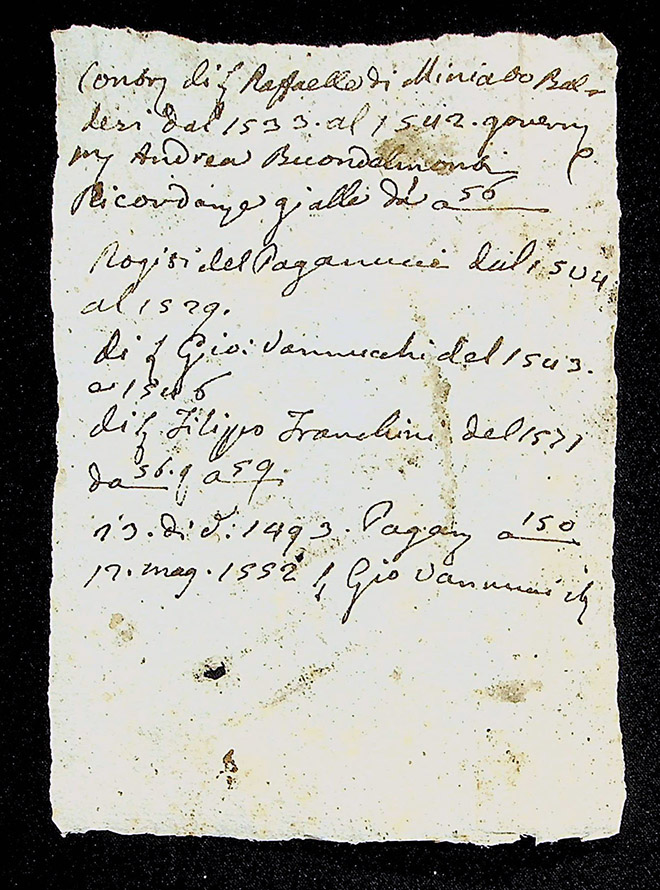 Contry di S Raffaelle di Miniato Bal=
desi dal 1533. al 1542. govern
m Andrea Buondelmonti
Ricordanze gialle da a 56
Rogiti del Paganucci dal 1504
al 1529.
di S Gio: Vannucchi del 1543.
a 1546
di S Filippo Franchini del 1571
da 56. a 59.
13. di 1493. Pagan a 150
17. mag. 1552 S Gio Vannucci